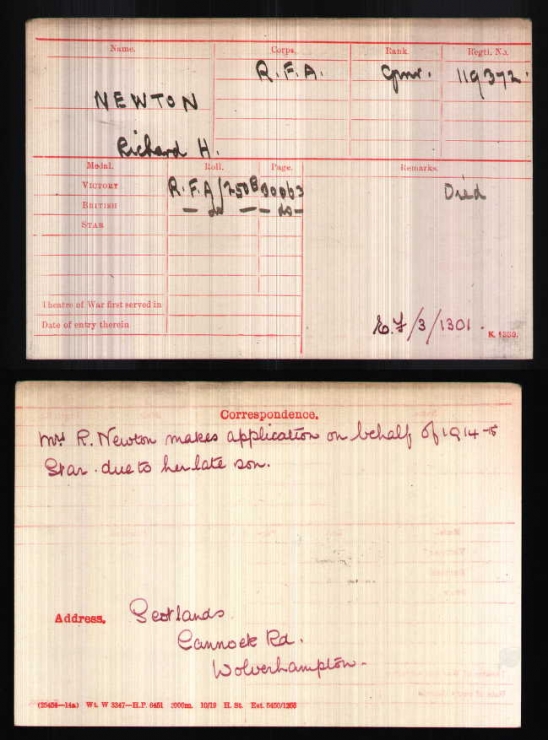 Name. Corps. Rank. Regtl. No.
R.F.A. Gnr. 119372.
NEWTON
Richard H.
Medal. Roll. Page. Remarks.
VICTORY R.F.A/250B 20063 Died
BRITISH — do — — do —
STAR
Theatre of War first served in
Date of entry therein
E.F/3/1301. K. 1380.
Correspondence.
Mrs R. Newton makes application on behalf of 1914-5
Star due to her late son.
Address. Scotlands
Cannock Rd.
Wolverhampton.
Wt. W 3347—H.P. 10/19 H. St.